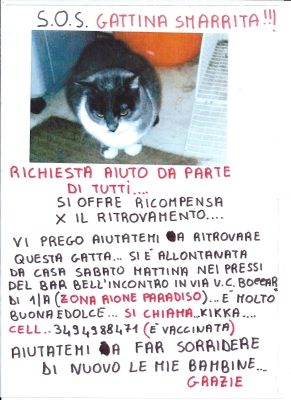 S.O.S. GATTINA SMARRITA!!!
RICHIESTA AIUTO DA PARTE
DI TUTTI....
SI OFFRE RICOMPENSA
X IL RITROVAMENTO....
VI PREGO AIUTATEMI A RITROVARE
QUESTA GATTA... SI È ALLONTANATA
DA CASA SABATO MATTINA NEI PRESSI
DEL BAR BELL'INCONTRO IN VIA V.C. BOCCAR
DI 1/A (ZONA RIONE PARADISO)... È MOLTO
BUONA E DOLCE... SI CHIAMA...KIKKA....
CELL.. 3494988471 (È VACCINATA)
AIUTATEMI A FAR SORRIDERE
DI NUOVO LE MIE BAMBINE...
GRAZIE